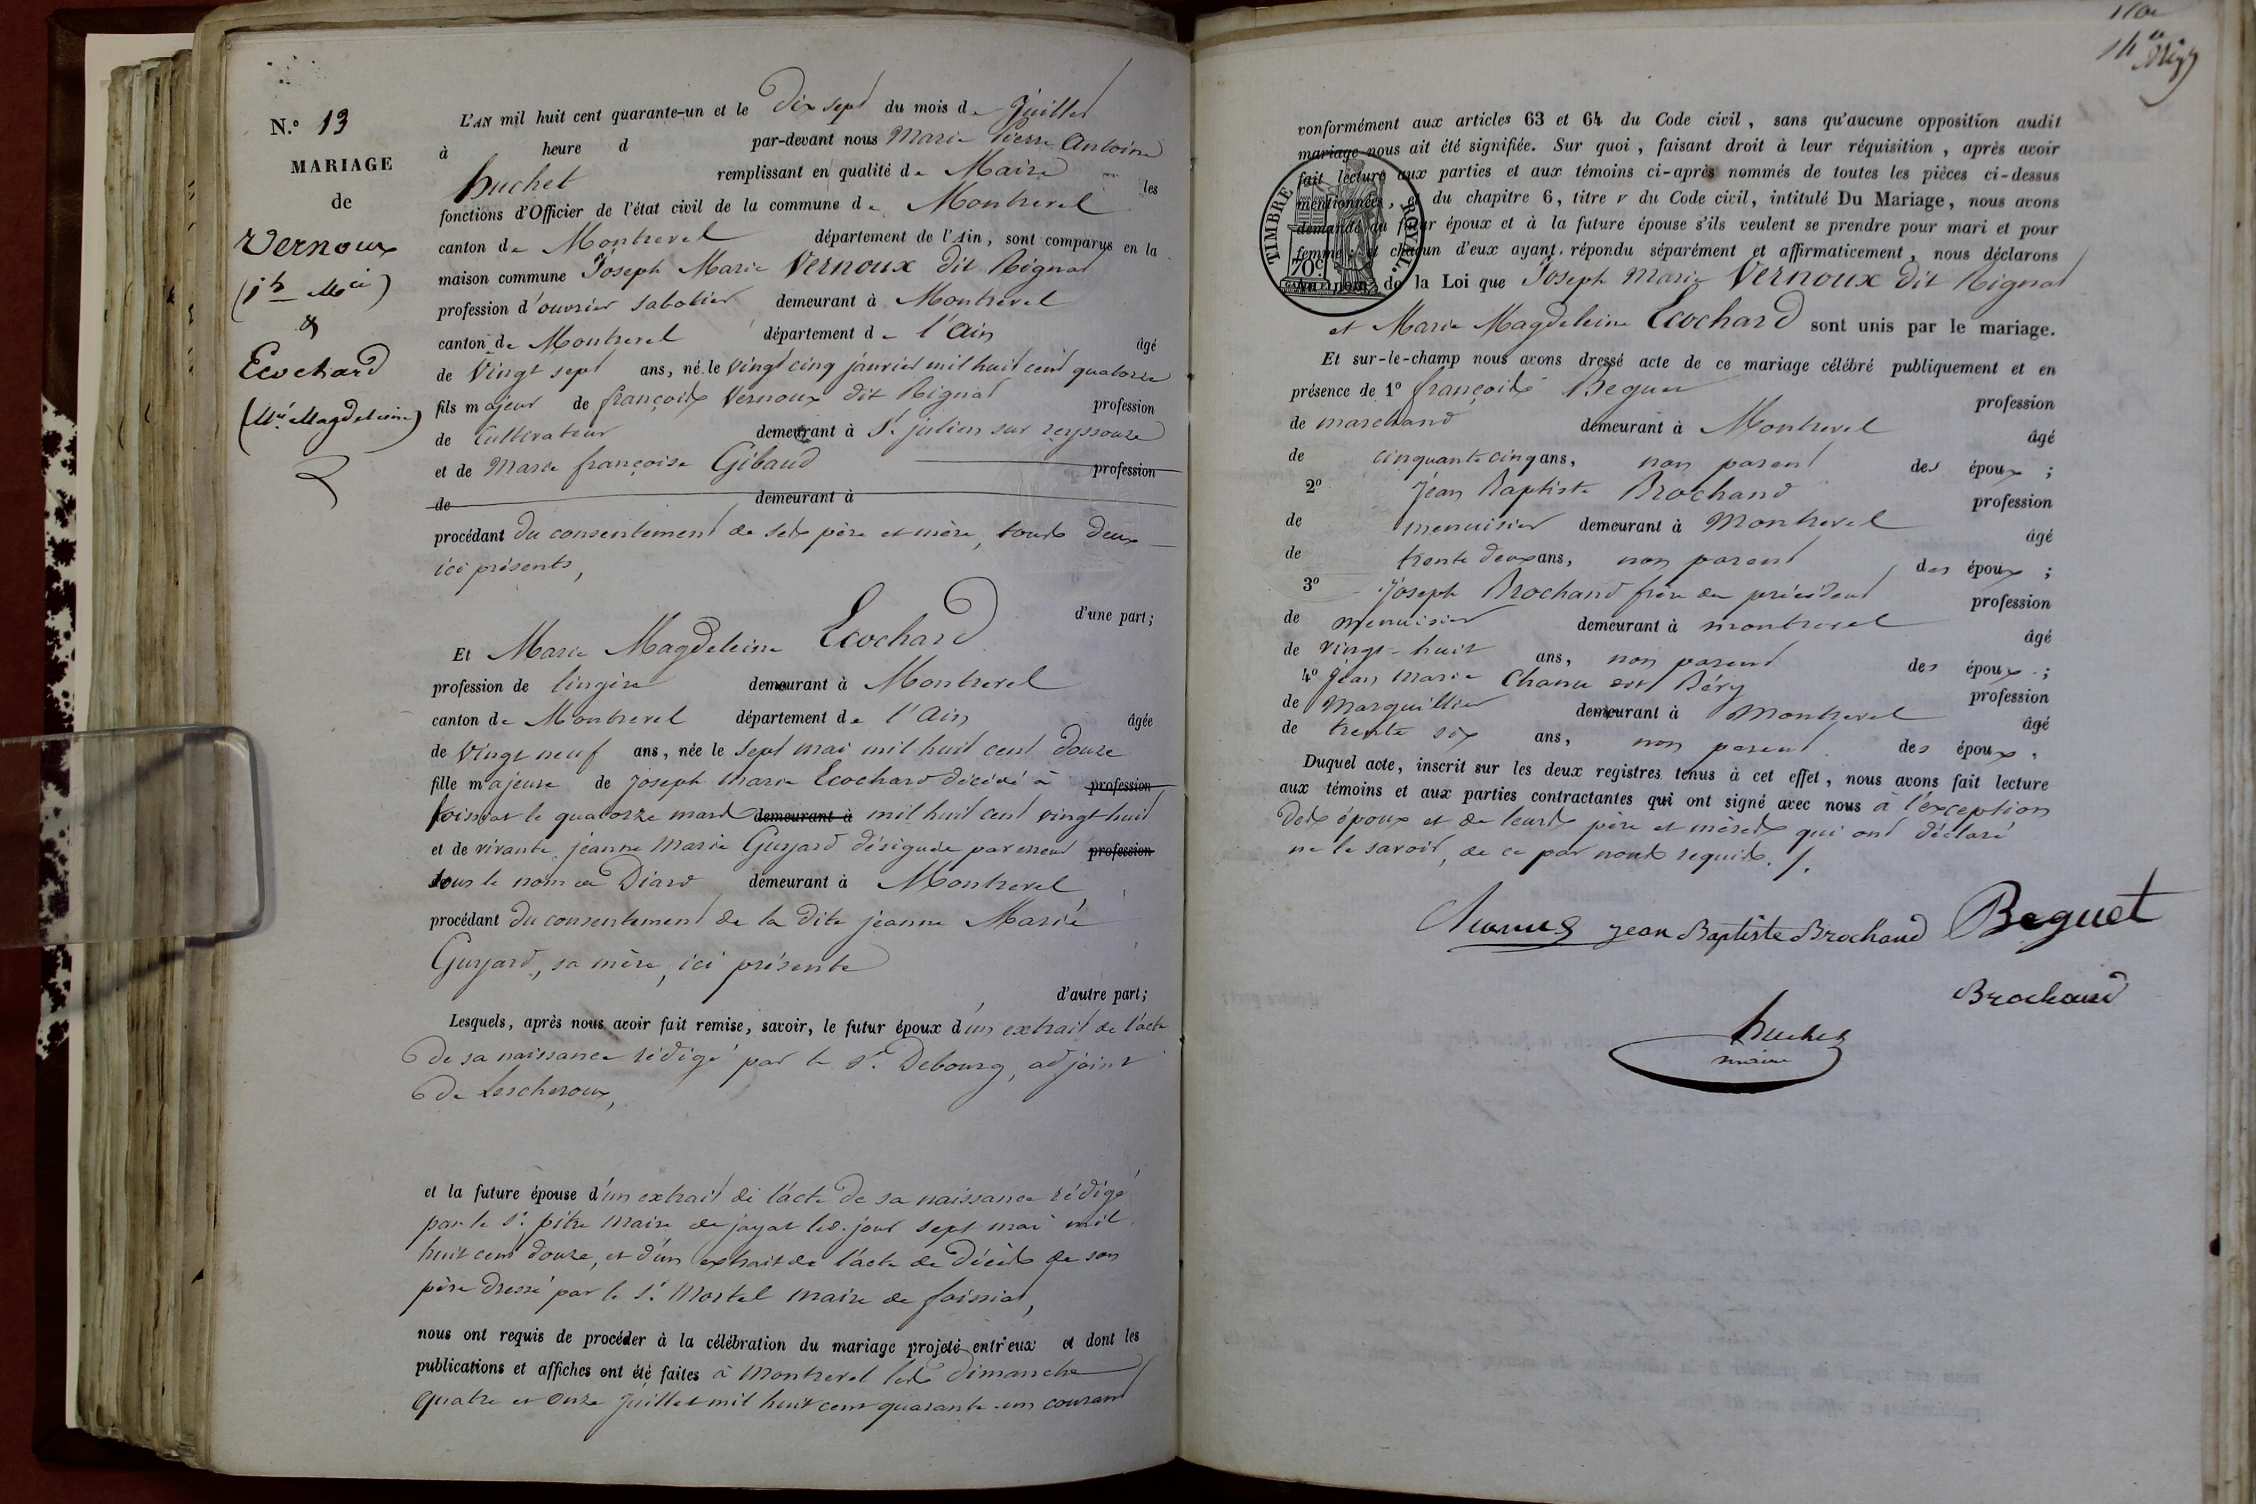 N.° 13
MARIAGE
de
Vernoux
(Jh Mie)
&
Ecochard
(Mie Magdeleine)
L'AN mil huit cent quarante-un et le dix sept du mois de Juillet
à heure d par-devant nous Marie Pierre Antoine
huchet remplissant en qualité de Maire les
fonctions d'Officier de l'état civil de la commune de Montrevel
canton de Montrevel département de l'Ain, sont comparus en la
maison commune Joseph Marie Vernoux dit Rignat
profession d'ouvrier sabotier demeurant à Montrevel
canton de Montrevel département de l'Ain âgé
de Vingt sept ans, né le vingt cinq janvier mil huit cent quatorze
fils majeur de françois Vernoux dit Rignat profession
de Cultivateur demeurant à St. julien sur reyssouze
et de Marie françoise Gibaud profession
de demeurant à
procédant du consentement de ses père et mère, tous deux
ici présents,
d'une part;
Et Marie Magdeleine Ecochard
profession de lingère demeurant à Montrevel
canton de Montrevel département de l'Ain âgée
de Vingt neuf ans, née le sept mai mil huit cent douze
fille majeure de joseph marie Ecochard décédé à profession
foissiat le quatorze mars demeurant à mil huit cent vingt huit
et de vivante jeanne Marie Guyard désignée par erreur profession
sous le nom de Diard demeurant à Montrevel,
procédant du consentement de la dite jeanne Marie
Guyard, sa mère, ici présente
d'autre part;
Lesquels, après nous avoir fait remise, savoir, le futur époux d'un extrait de l'acte
de sa naissance rédigé par le Sr. Debourg, adjoint
de Lescheroux,
et la future épouse d'un extrait de l'acte de sa naissance rédigé
par le Sr. pitre maire de jayat led. jour sept mai mil
huit cent douze, et d'un extrait de l'acte de décès de son
père dressé par le Sr. Mortel maire de foissiat,
nous ont requis de procéder à la célébration du mariage projeté entr'eux et dont les
publications et affiches ont été faites à Montrevel les dimanche
quatre et onze juillet mil huit cent quarante-un courant
conformément aux articles 63 et 64 du Code civil, sans qu'aucune opposition audit
mariage nous ait été signifiée. Sur quoi, faisant droit à leur réquisition, après avoir
fait lecture aux parties et aux témoins ci-après nommés de toutes les pièces ci-dessus
mentionnées, et du chapitre 6, titre V du Code civil, intitulé Du Mariage, nous avons
demandé au futur époux et à la future épouse s'ils veulent se prendre pour mari et pour
femme; et chacun d'eux ayant répondu séparément et affirmativement, nous déclarons
au nom de la Loi que Joseph Marie Vernoux dit Rignat
et Marie Magdeleine Ecochard sont unis par le mariage.
TIMBRE ROYAL.
70c
Et sur-le-champ nous avons dressé acte de ce mariage célébré publiquement et en
présence de 1° françois Beguet profession
de marchand demeurant à Montrevel âgé
de cinquante cinq ans, non parent des époux;
2° Jéan Baptiste Brochand profession
de menuisier demeurant à Montrevel âgé
de trente deux ans, non parent des époux;
3° Joseph Brochand frère du précédent profession
de menuisier demeurant à montrevel âgé
de vingt-huit ans, non parent des époux;
4° Jéan Marie Chanu dit Béry profession
de Marguillier demeurant à Montrevel âgé
de trente six ans, non parent des époux.
Duquel acte, inscrit sur les deux registres tenus à cet effet, nous avons fait lecture
aux témoins et aux parties contractantes qui ont signé avec nous à l'exception
des époux et de leurs père et mères qui ont déclaré
ne le savoir, de ce par nous requis. /.
jean Baptiste Brochand Beguet
Brochand
huchet
maire